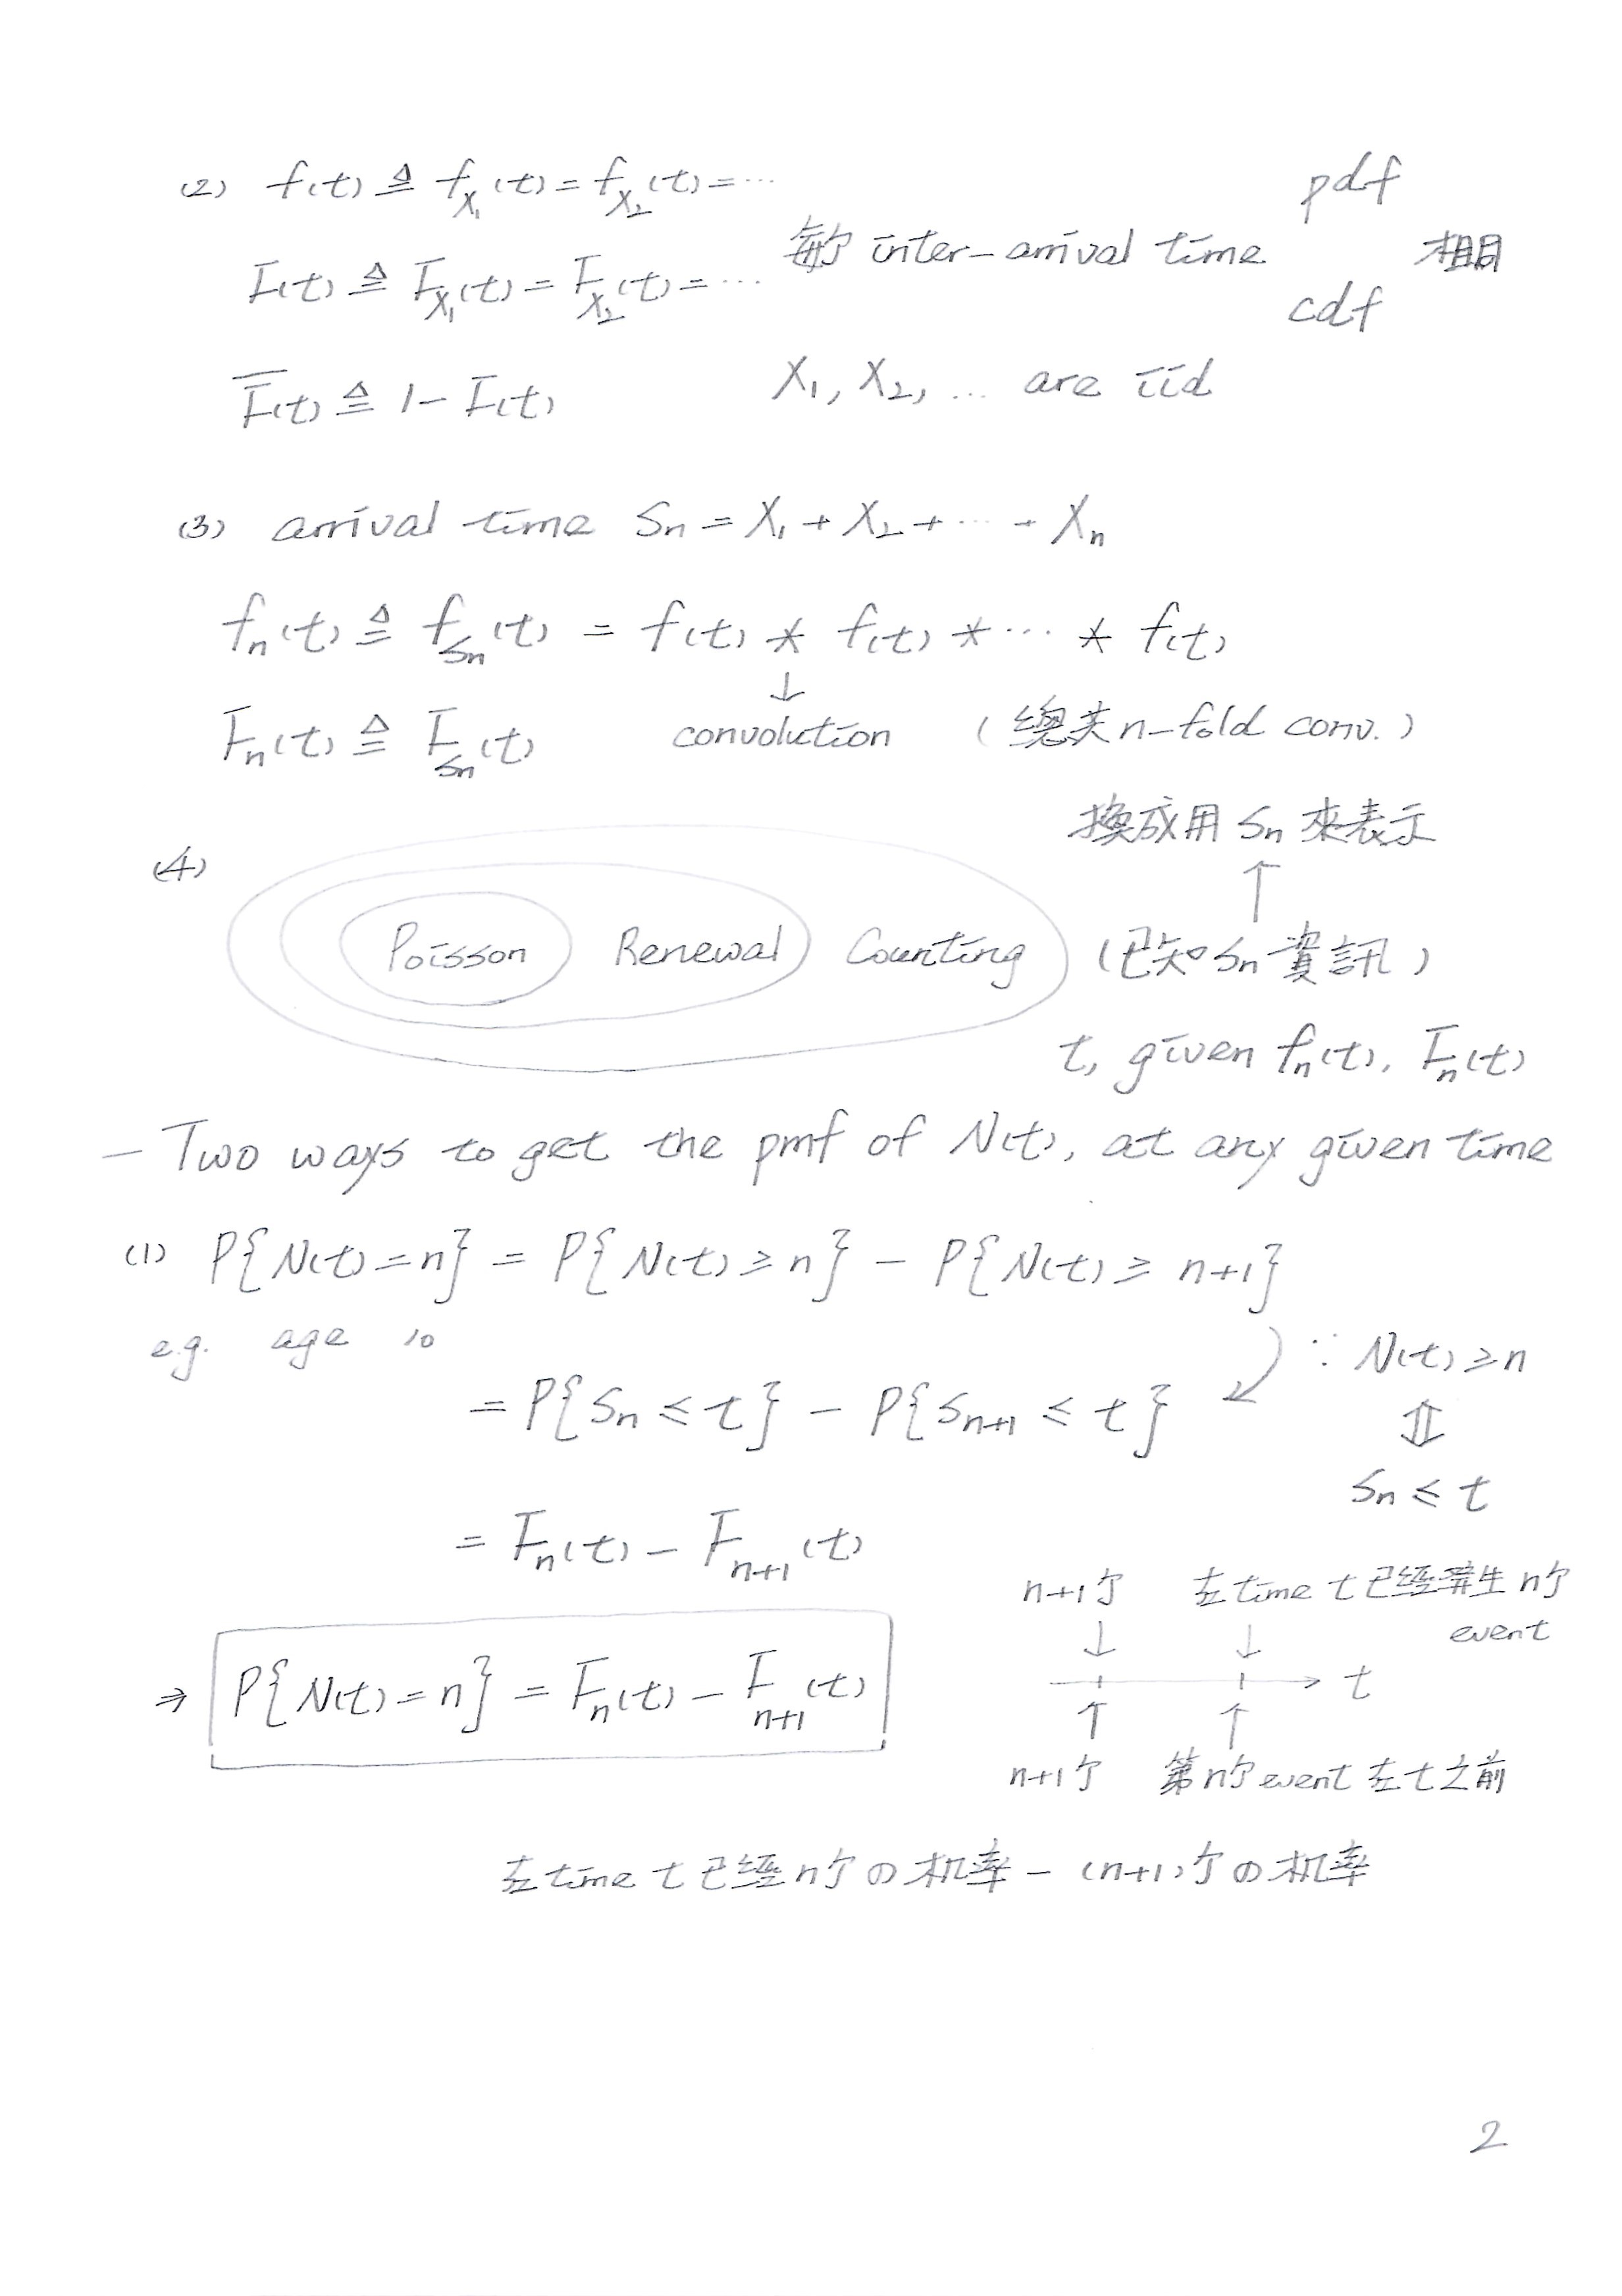 (2) f(t) ≜ f_X₁(t) = f_X₂(t) = ⋯ pdf
每个 inter-arrival time 相同
F(t) ≜ F_X₁(t) = F_X₂(t) = ⋯ cdf
F̅(t) ≜ 1 - F(t) X₁, X₂, ⋯ are iid
(3) arrival time Sn = X₁ + X₂ + ⋯ + Xn
fn(t) ≜ f_Sn(t) = f(t) * f(t) * ⋯ * f(t)
↓
Fn(t) ≜ F_Sn(t) convolution (總共 n-fold conv.)
換成用 Sn 來表示
↑
(4) Poisson Renewal Counting (已知 Sn 資訊)
t, given fn(t), Fn(t)
- Two ways to get the pmf of N(t), at any given time
(1) P{N(t) = n} = P{N(t) ≥ n} - P{N(t) ≥ n+1}
e.g. age 10 ∵ N(t) ≥ n
= P{Sn ≤ t} - P{Sn+1 ≤ t} ⇕
Sn ≤ t
= Fn(t) - Fn+1(t)
n+1个 在time t 已經發生 n个 event
↓ ↓
⇒ P{N(t) = n} = Fn(t) - Fn+1(t) → t
↑ ↑
n+1个 第n个event 在 t 之前
在time t 已經 n个 の 机率 - (n+1)个 の 机率
2